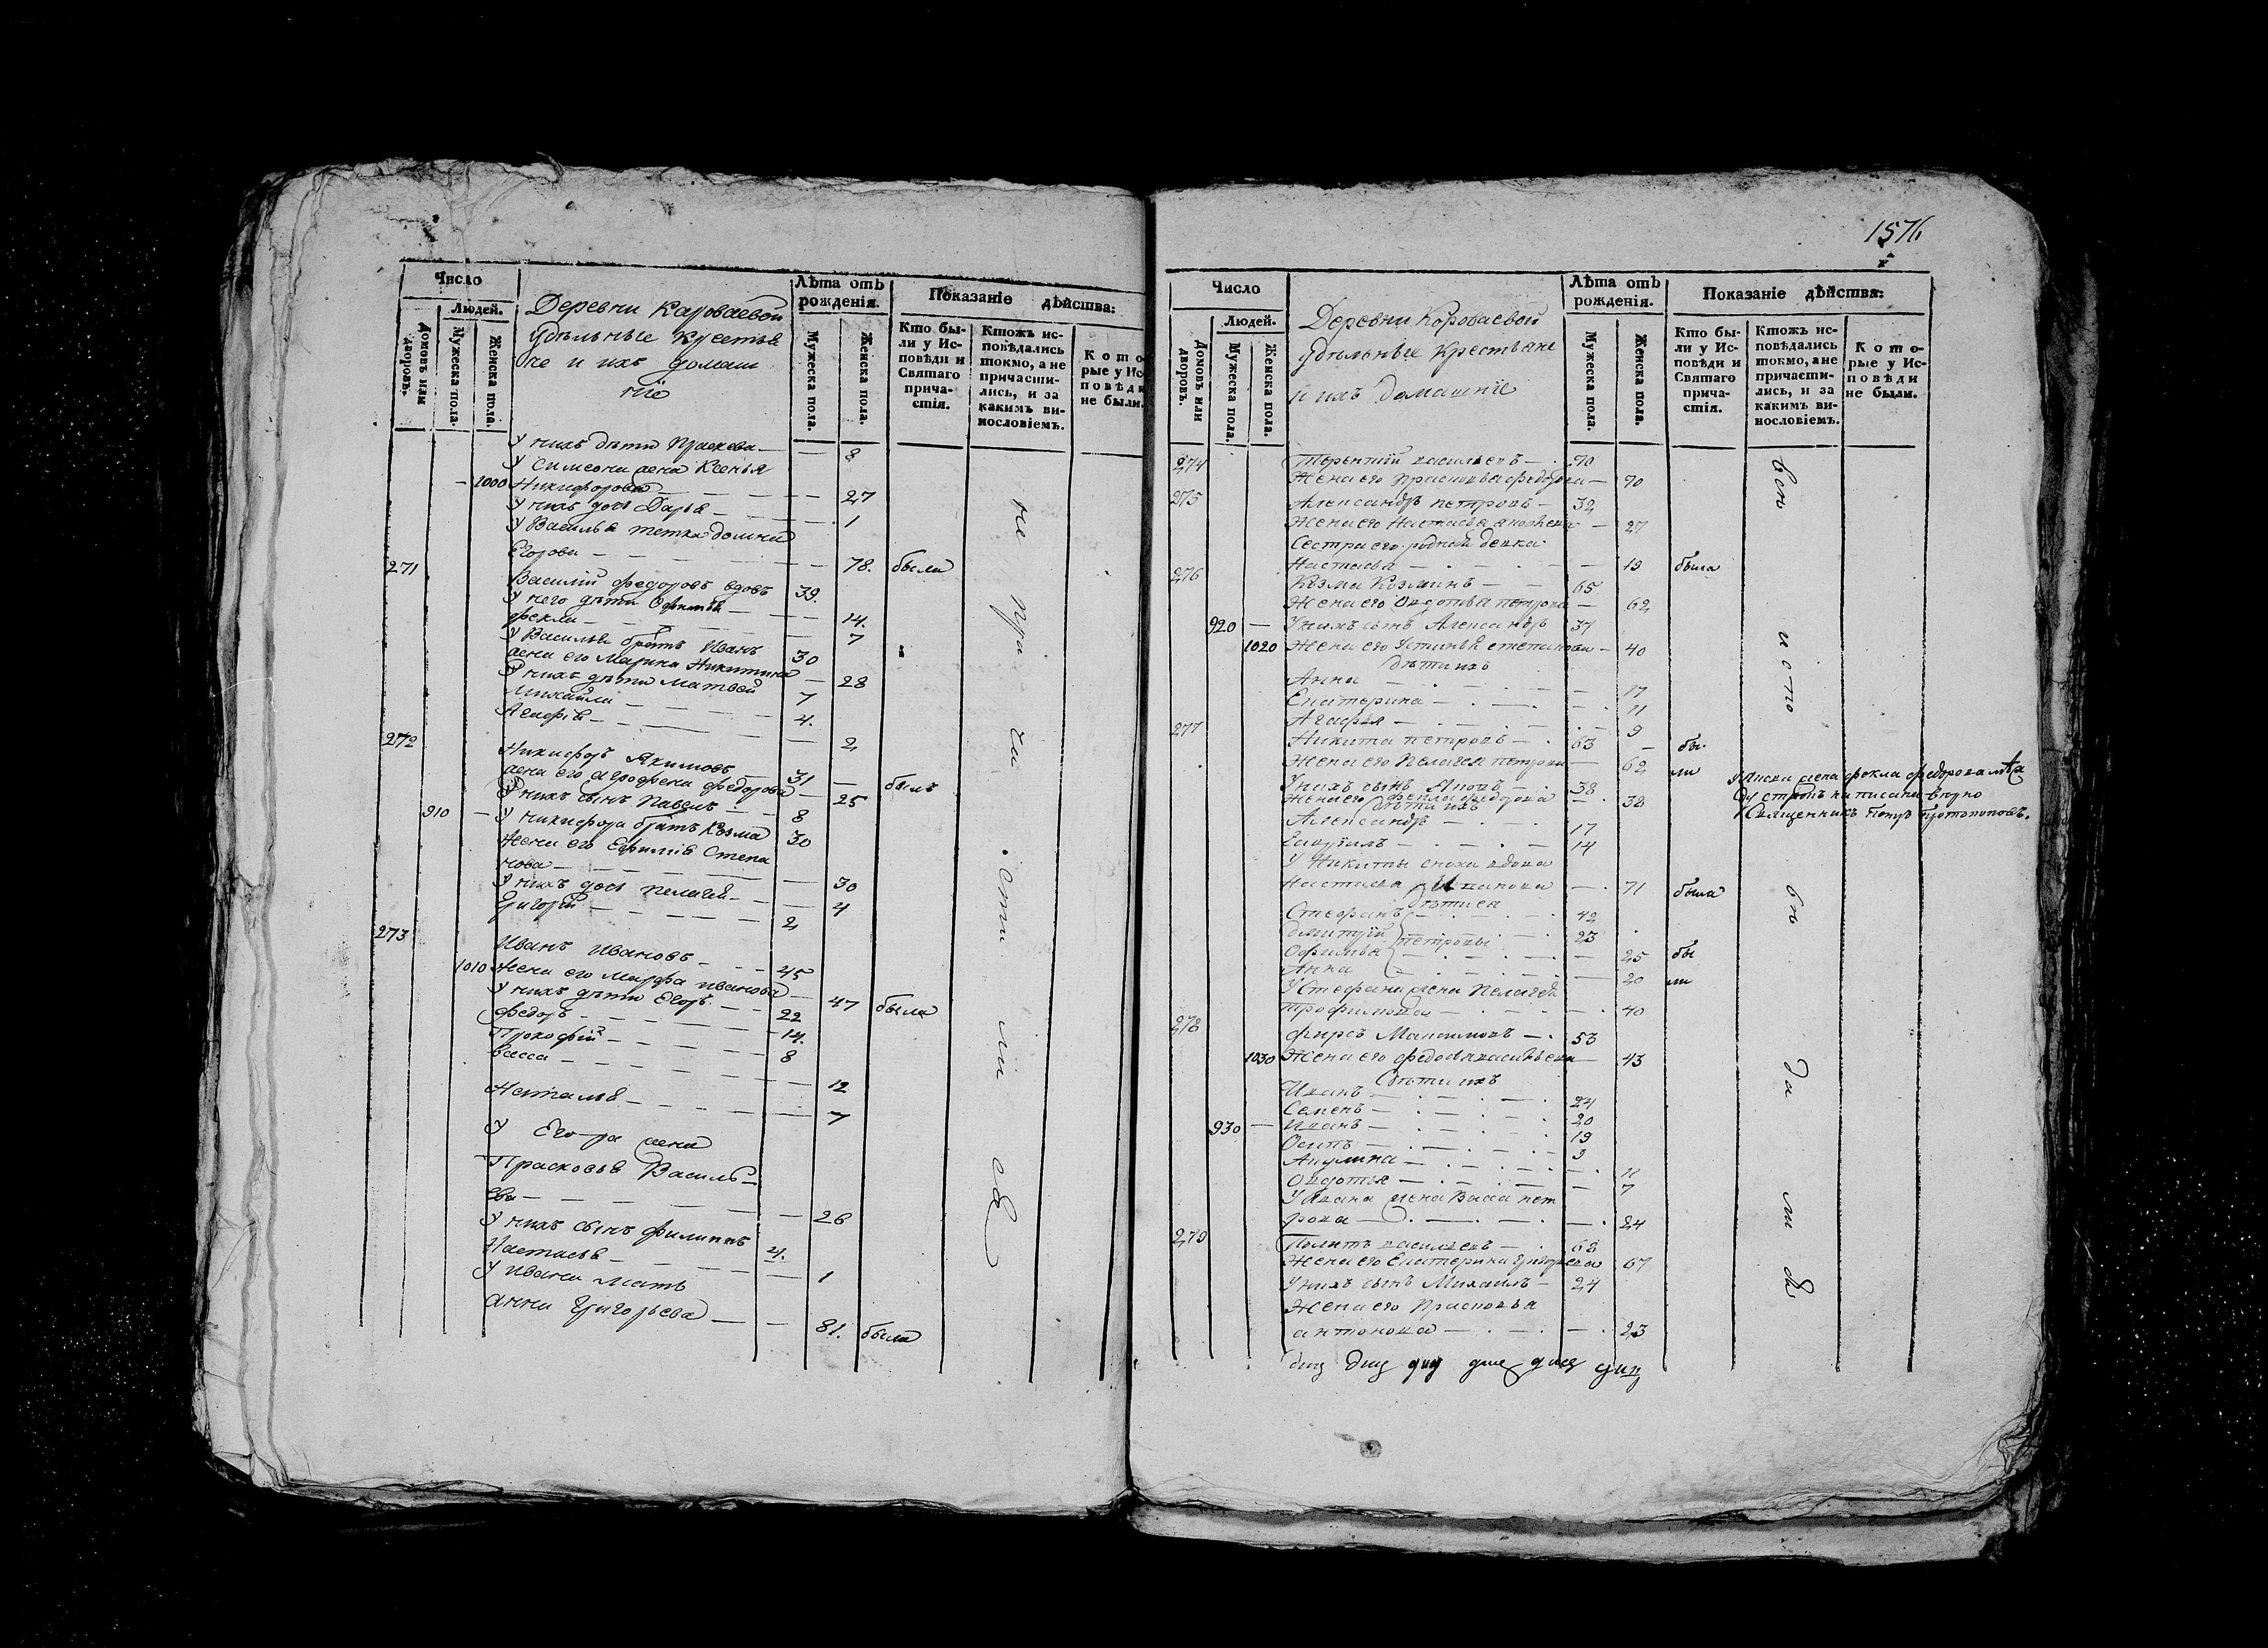 Число
Людей.
Домовъ или дворовъ.
Мужеска пола.
Женска пола.
Деревни Короваевой
удѣльные Крестья
не и ихъ домаш
ніе
Лѣта отъ рожденія.
Мужеска пола.
Женска пола.
Показаніе дѣйства:
Кто были у Исповѣди и Святаго причастія.
Ктожъ исповѣдались токмо, а не причастились, и за какимъ винословіемъ.
Которые у Исповѣди не были.
У нихъ дѣти Праскева — 8
У Симеона жена Ксенья
1000 Никифорова — 27
У нихъ дочь Дарья — 1
У Василья тетка домна
Егорова — 78. была
271 Василий федоровъ вдовъ 39.
У него дѣти Офимья — 14.
фекла — 7
У Василья братъ Иванъ 30
жена его Марина Никитина — 28
У нихъ дѣти Матвей 7
Михайла — 4.
Агафья — 2
272 Никифоръ Якимовъ 31 былъ
жена его Агрофена федорова — 25
У нихъ сынъ Павелъ — 8
910 У никифора братъ Козма 30
Жена его Ефимія Степа
нова — 30
У нихъ дочь пелагея — 4
Григорій — 2
273 Иванъ Ивановъ — 45
1010 Жена его Марфа иванова — 47 была
У нихъ дѣти Егоръ — 22
федоръ — 14.
Прокофій — 8
васса — 12
Наталья — 7
У Егора жена
Прасковья Василь-
ева — 26
У нихъ сынъ филиппъ 4.
Настасья — 1
У ивана мать
анна Григорьева — 81. была
не при ча сти ли ся
1576
Число
Людей.
Домовъ или дворовъ.
Мужеска пола.
Женска пола.
Деревни Короваевой
удѣльные Крестьяне
и ихъ домашніе
Лѣта отъ рожденія.
Мужеска пола.
Женска пола.
Показаніе дѣйства:
Кто были у Исповѣди и Святаго причастія.
Ктожъ исповѣдались токмо, а не причастились, и за какимъ винословіемъ.
Которые у Исповѣди не были.
274 Терентий васильевъ — 70
Жена его Прасковья федорова — 70
275 Александръ петровъ — 32
Жена его Настасья — 27
Сестра его родная девка
Настасья — 19 была
276 Козма Козминъ — 65
Жена его Овдотья петрова — 62
920 У нихъ сынъ Александръ 37
1020 Жена его Устинья степанова — 40
дѣти ихъ
Анна — 17
Екатерина — 11
Агафья — 9
277 Никита петровъ — 63 бы-
Жена его Пелагея петрова — 62 ли
У нихъ сынъ — 38
Жена его фекла федорова — 38
дѣти ихъ
Александръ — 17
Гаврилъ — 14
У Никиты сноха вдова
Настасья — 71 была
дѣти ея
Стефанъ — 42
дмитрій петровы — 23
Офимья — 25 бы
Анна — 20 ли
У Стефана жена Пелагея
трофимова — 40
278 фирсъ Максимовъ — 53
1030 Жена его федосья васильева — 43
дѣти ихъ
Иванъ — 24
Семенъ — 20
930 Иванъ — 19
Осипъ — 9
Акулина — 11
Овдотья — 7
У Ивана жена Васса пет
рова — 24
279 васильевъ — 68
Жена его Екатерина григорьева 67
У нихъ сынъ Михаилъ — 24
Жена его Прасковья
антонова — 23
всѣ испо вѣ да ли ся
жена фекла федорова
строкъ написана вѣрно
Священникъ Петръ Протопоповъ.